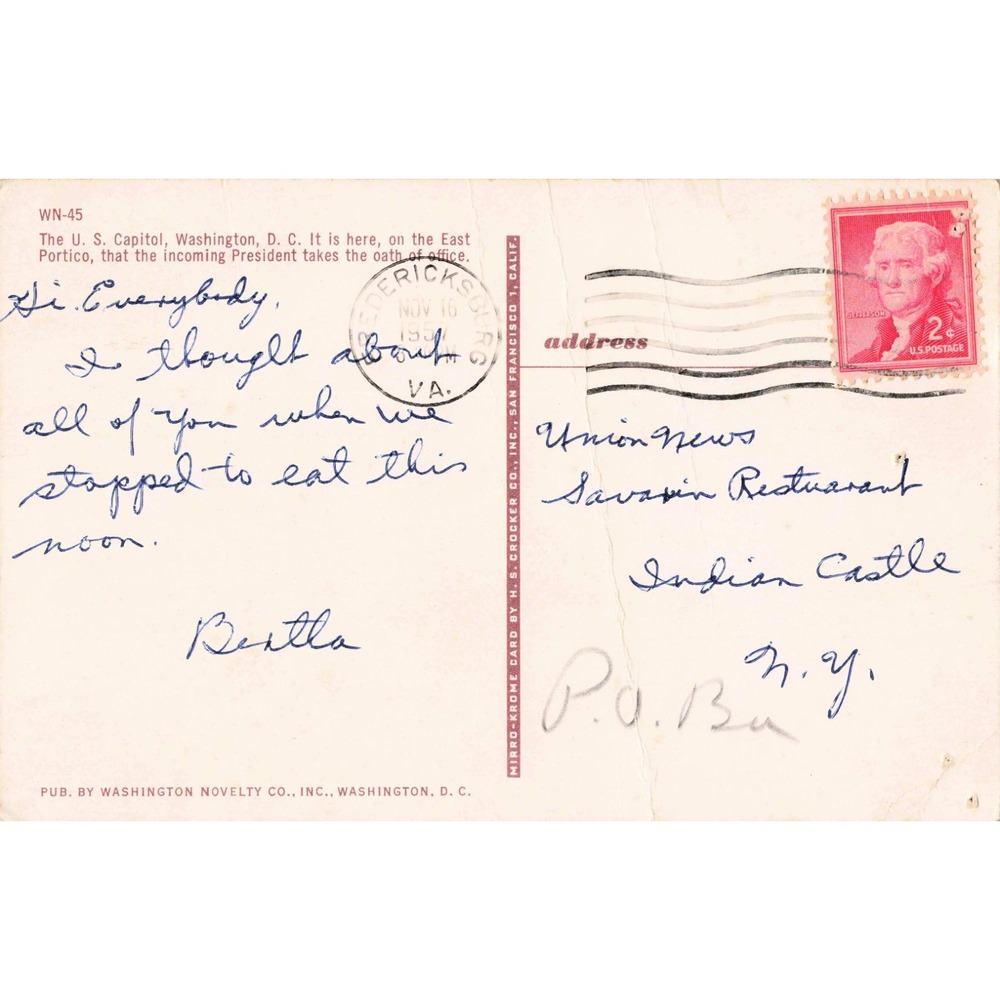 WN-45
The U. S. Capitol, Washington, D. C. It is here, on the East
Portico, that the incoming President takes the oath of office.
Hi Everybody,
I thought about
all of you when we
stopped to eat this
noon.
Bertha
PUB. BY WASHINGTON NOVELTY CO., INC., WASHINGTON, D. C.
FREDERICKSBURG
NOV 16
195
M
VA.
MIRRO-KROME CARD BY H. S. CROCKER CO., INC., SAN FRANCISCO 1, CALIF.
address
JEFFERSON
2¢
U.S. POSTAGE
Union News
Savarin Restuarant
Indian Castle
N. Y.
P.O.